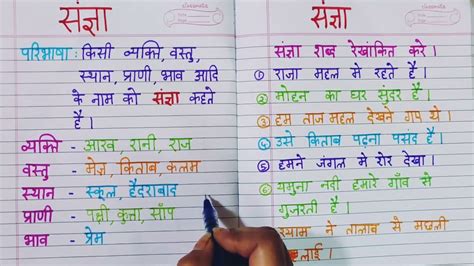 संज्ञा
परिभाषा : किसी व्यक्ति, वस्तु,
स्थान, प्राणी, भाव आदि
के नाम को संज्ञा कहते
है।
व्यक्ति - आरव, रानी, राज
वस्तु - मेज़, किताब, कलम
स्थान - स्कूल, हैदराबाद
प्राणी - पक्षी, कुत्ता, साँप
भाव - प्रेम
classmate
संज्ञा
संज्ञा शब्द रेखांकित करे।
① राजा महल मे रहते है।
② मोहन का घर सुंदर है।
③ हम ताज महल देखने गए थे।
④ उसे किताब पढ़ना पसंद है।
⑤ हमने जंगल मे शेर देखा।
⑥ यमुना नदी हमारे गाँव से
गुजरती है।
श्याम ने तालाब से मछली
लाई।